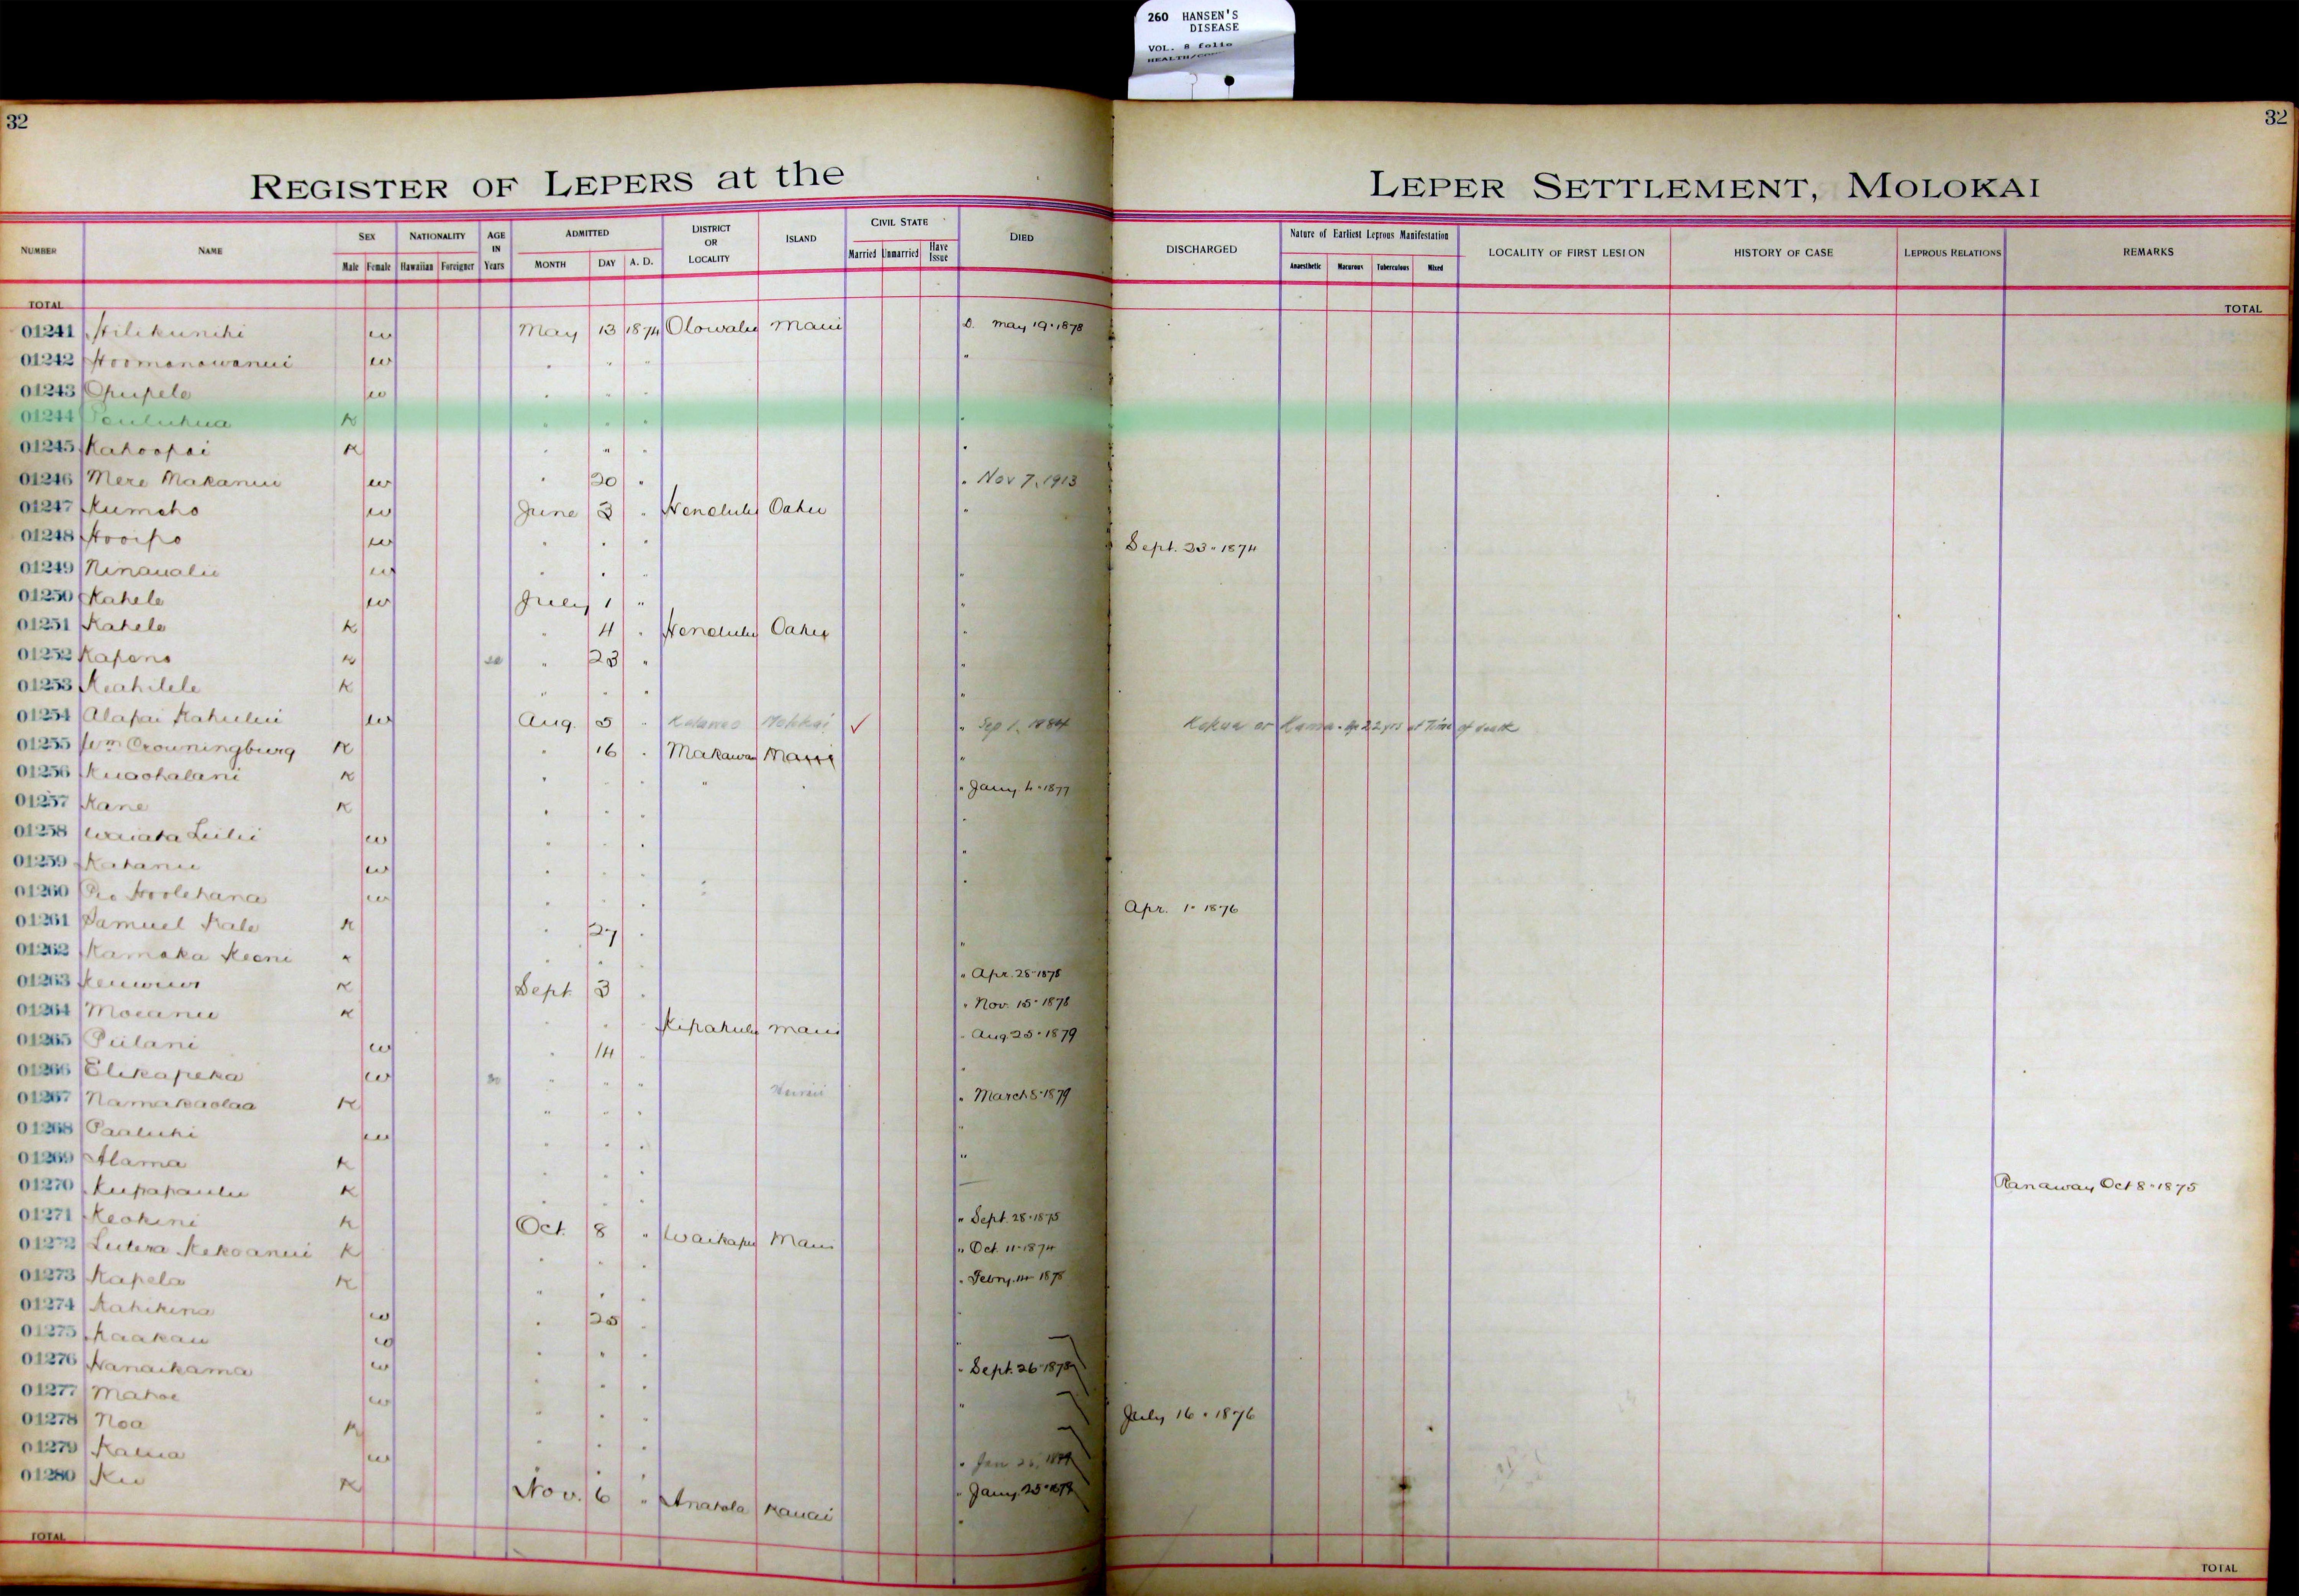 260 HANSEN'S
DISEASE
VOL. 8 folio
32
32
REGISTER OF LEPERS at the LEPER SETTLEMENT, MOLOKAI
NUMBER NAME SEX NATIONALITY AGE IN Years ADMITTED DISTRICT OR LOCALITY ISLAND CIVIL STATE DIED DISCHARGED Nature of Earliest Leprous Manifestation LOCALITY OF FIRST LESION HISTORY OF CASE LEPROUS RELATIONS REMARKS
Male Female Hawaiian Foreigner MONTH DAY A. D. Married Unmarried Have Issue Anaesthetic Macurous Tuberculous Mixed
TOTAL TOTAL
01241 Hilikunihi w May 13 1874 Olowalu Maui D. May 19 · 1878
01242 Hoomanawanui w " " " "
01243 Opupele w " " "
01244 K " " " "
01245 Kahoopai K " " " "
01246 Mere Makanui w " 20 " " Nov 7, 1913
01247 Kumeho w June 3 " Honolulu Oahu "
01248 Hooipo w " " " Sept. 23 · 1874
01249 Ninaualu w " " " "
01250 Kahele w July 1 " "
01251 Kahele K " 4 " Honolulu Oahu "
01252 Kapena K " 23 " "
01253 Keahilele K " " " "
01254 Alapai Kahului w Aug. 5 " Molokai ✓ " Sep 1, 1884 Kokua or Kama · age 22 yrs at Time of death
01255 Wm Crowningburg K " 16 " Makawao Maui "
01256 Kuaohalani K " " " " " " Jany. 4 · 1877
01257 Kane K " " " "
01258 Waiata Luilii w " " " "
01259 Kahanu w " " " "
01260 Pio Hoolehana w " " " Apr. 1 · 1876
01261 Samuel Kale K " 27 " "
01262 Kamaka Keoni K " " " " Apr. 28 · 1878
01263 K Sept 3 " " Nov. 15 · 1878
01264 Moeanu K " " " Kipahulu Maui " Aug 25 · 1879
01265 Piilani w " 14 " "
01266 Elikapeka w 30 " " " Hawaii " March 5 · 1879
01267 Namakaolaa K " " " "
01268 Paaluhi w " " " "
01269 Alama K " " "
01270 Kupapaulu K " " " Ranaway Oct 8 · 1875
01271 Keokini K Oct. 8 " Waikapu Maui " Sept. 28 · 1875
01272 Lutera Kekoanui K " " " " Oct. 11 · 1874
01273 Kapela K " " " " Febry. 14 · 1878
01274 Kahikina w " 25 " "
01275 Kaakau w " " " "
01276 Hanaikama w " " " " Sept. 26 · 1878
01277 Mahoe w " " " "
01278 Noa K " " " July 16 · 1876
01279 Kalua w " " " " Jan
01280 Ku K Nov. 6 " Anahola Kauai " Jany. 25 ·
TOTAL TOTAL